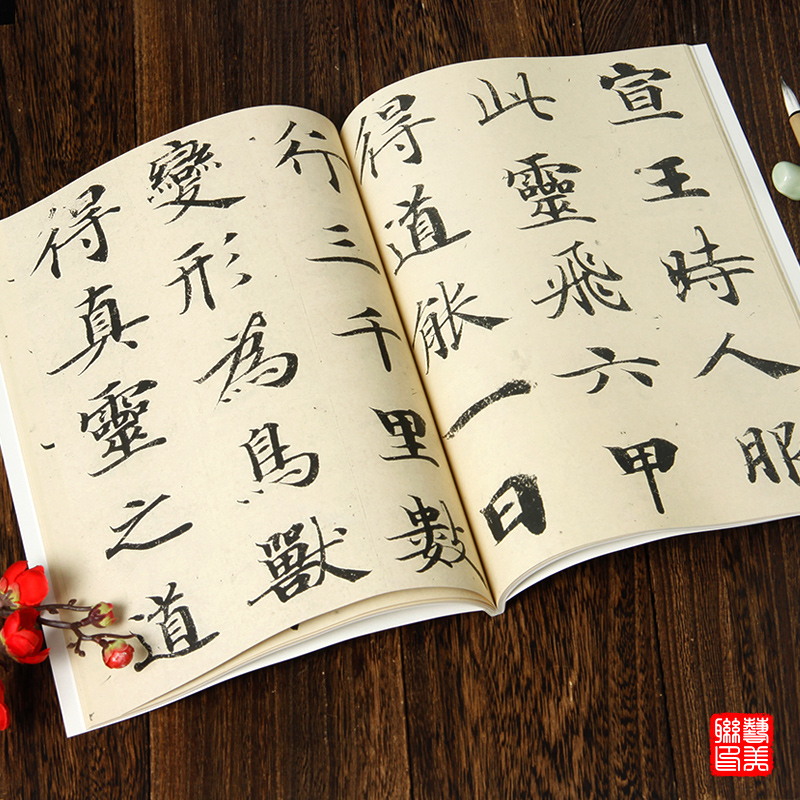 宣王時人服
此靈飛六甲
得道能一日
行三千里數
變形為鳥獸
得真靈之道
藝美
聯印